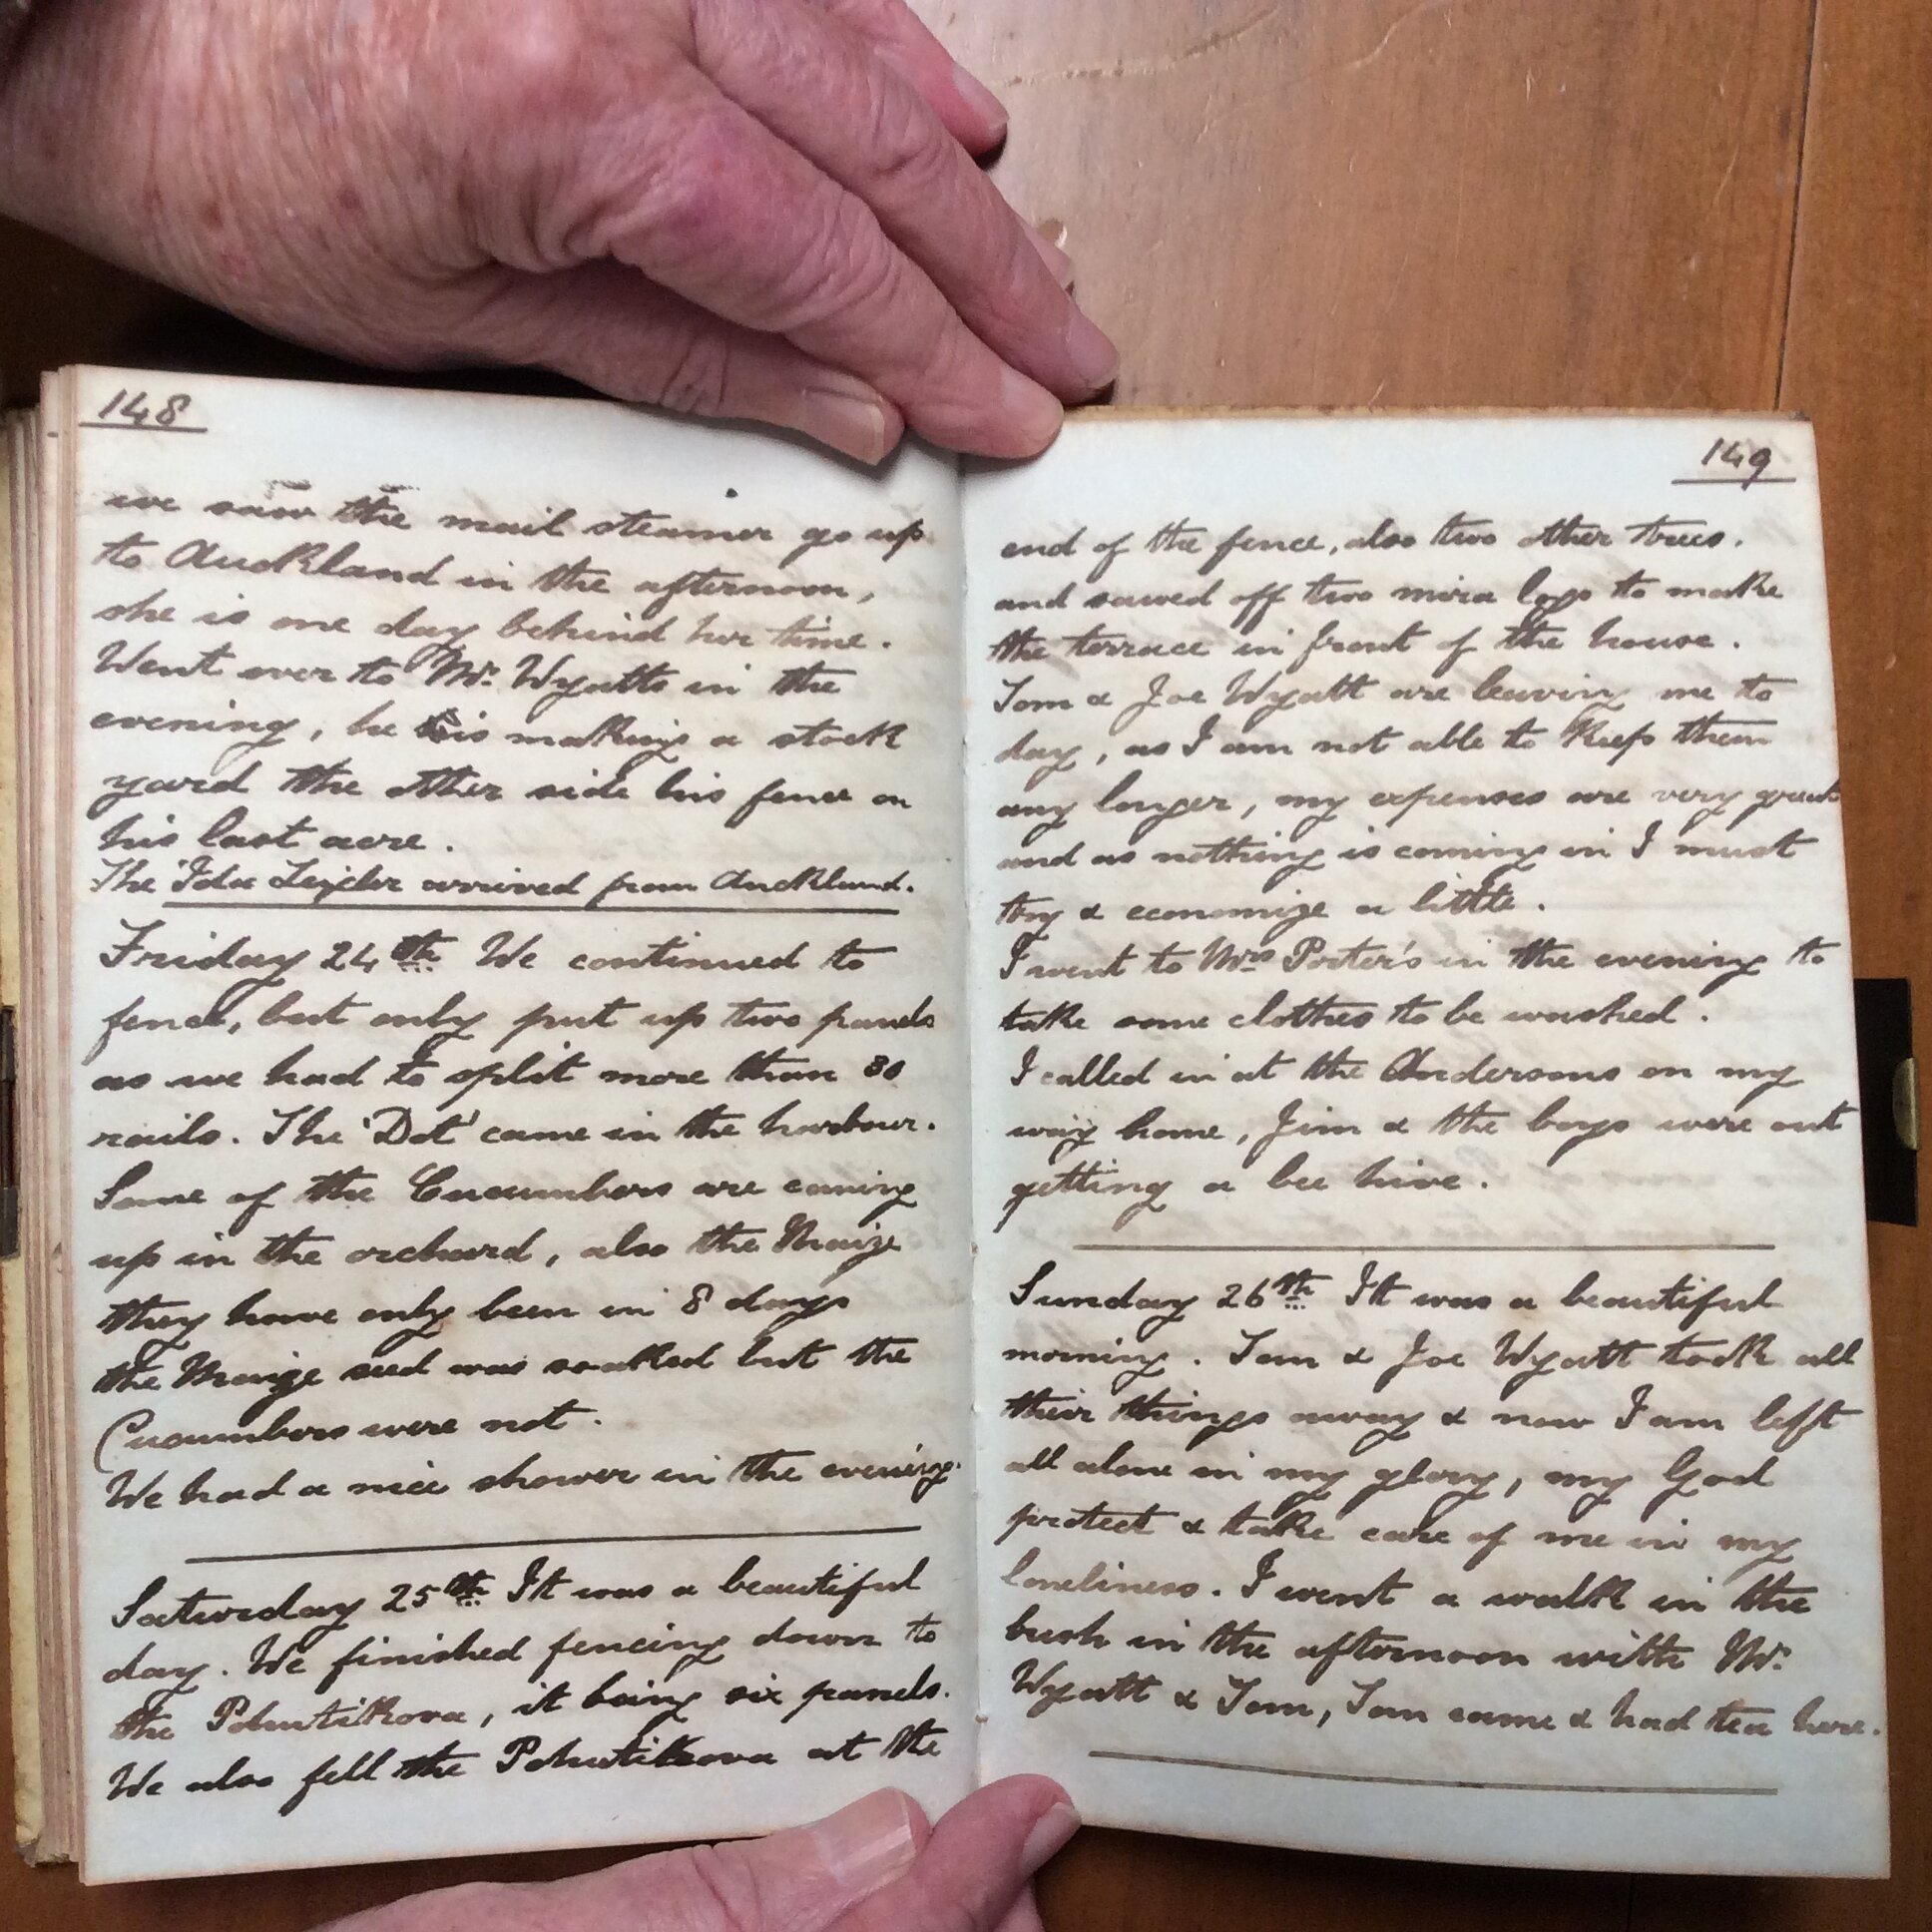 148
we saw the mail steamer go up
to Auckland in the afternoon,
she is one day behind her time.
Went over to Mr. Wyatts in the
evening, he is making a stock
yard the other side his fence on
his last acre.
The 'Ida Zeigler arrived from Auckland.
Friday 24th We continued to
fence, but only put up two panels
as we had to split more than 30
rails. The 'Dot' came in the harbour.
Some of the Cucumbers are coming
up in the orchard, also the Maize
they have only been in 8 days
the Maize seed was soalked but the
Cucumbers were not.
We had a nice shower in the evening.
Saturday 25th It was a beautiful
day. We finished fencing down to
the Pohutikova, it being six panels.
We also fell the Pohutikova at the
149
end of the fence, also two other trees.
and sawed off two mira logs to make
the terrace in front of the house.
Tom & Joe Wyatt are leaving me to
day, as I am not able to keep them
any longer, my expenses are very great
and as nothing is coming in I must
try & economize a little.
I went to Mrs Porter's in the evening to
take some clothes to be washed.
I called in at the Andersons on my
way home, Jim & the boys were out
getting a bee hive.
Sunday 26th It was a beautiful
morning. Tom & Joe Wyatt took all
their things away & now I am left
all alone in my glory, my God
protect & take care of me in my
loneliness. I went a walk in the
bush in the afternoon with Mr.
Wyatt & Tom, Tom came & had tea here.